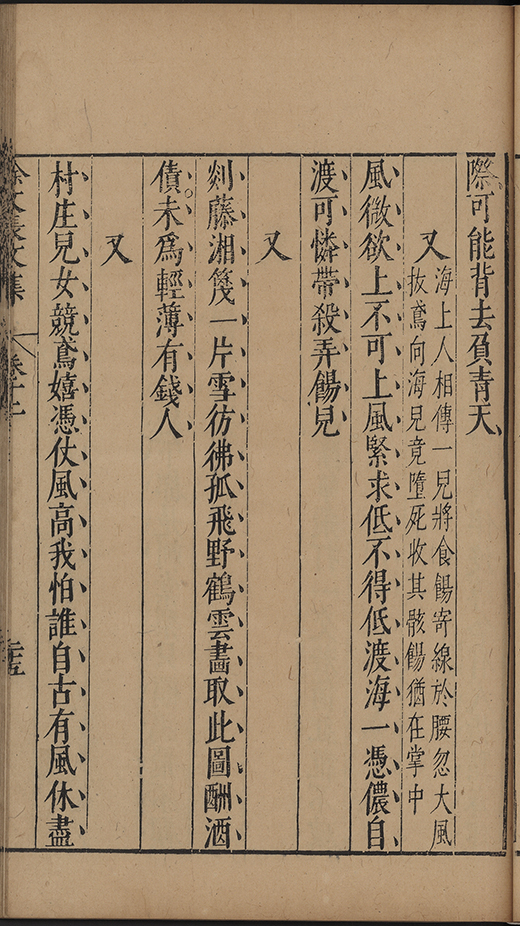 際可能背去負青天
又
海上人相傳一兒將食餳寄線於腰忽大風
拔鳶向海兒竟墮死收其骸餳猶在掌中
風微欲上不可上風緊求低不得低渡海一憑儂自
渡可憐帶殺弄餳兒
又
剡藤湘篾一片雪彷彿孤飛野鶴雲畫取此圖酬酒
債未爲輕薄有錢人
又
村庄兒女競鳶嬉憑仗風高我怕誰自古有風休盡
徐文長文集
卷十二
二十五